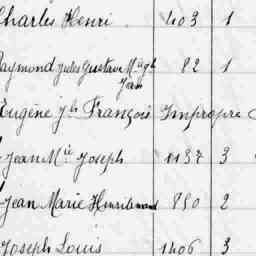 Charles Henri 403 1
Raymond Jules Gustave 82 1
Jean
Eugène François Impropre
Jean Mie Joseph 1137 3
Jean Marie 850 2
Joseph Louis 1406 3